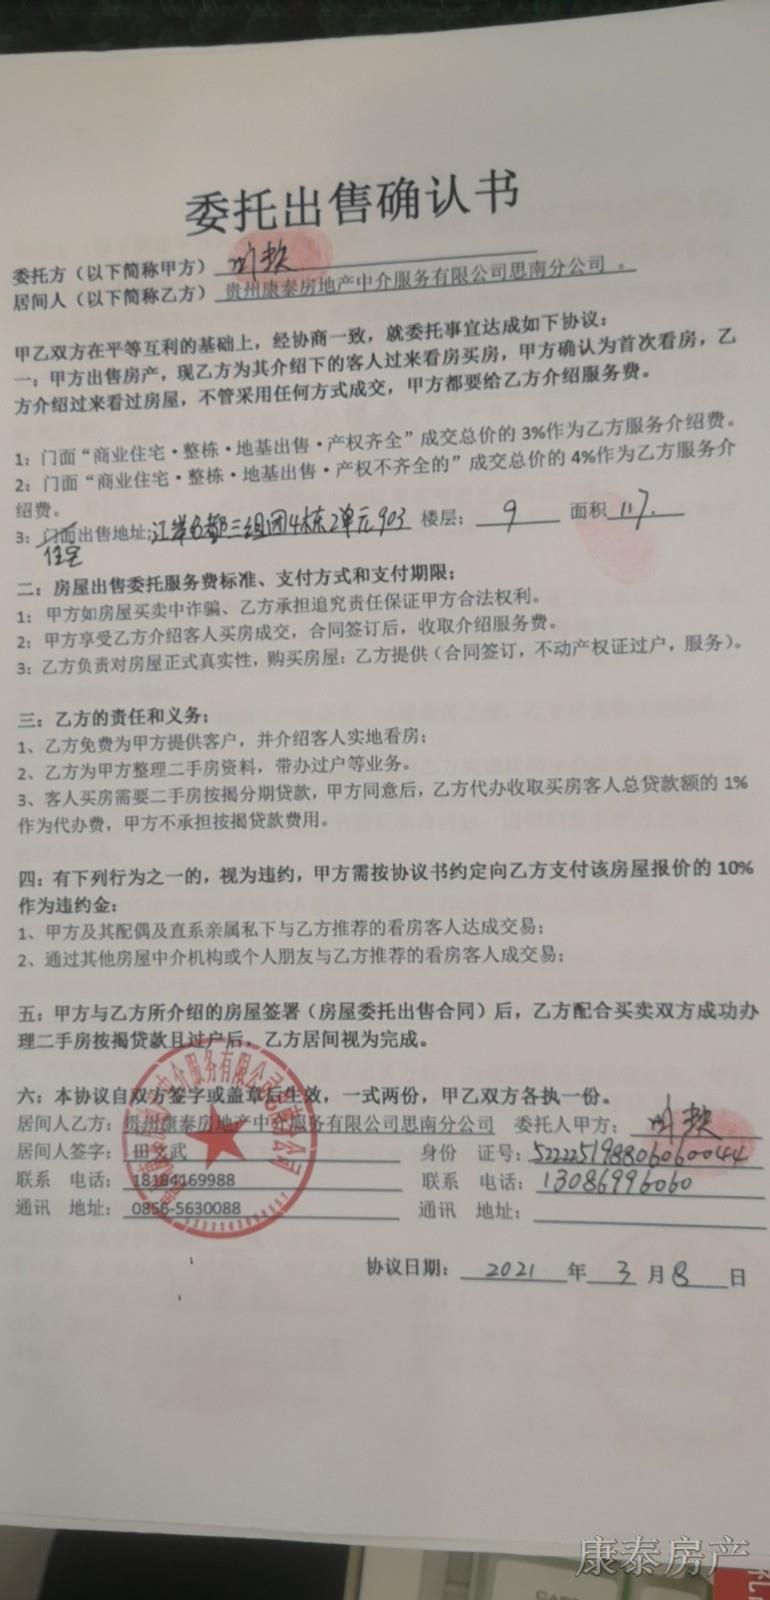 委托出售确认书
委托方（以下简称甲方）
居间人（以下简称乙方）贵州康泰房地产中介服务有限公司思南分公司 。
甲乙双方在平等互利的基础上，经协商一致，就委托事宜达成如下协议：
一：甲方出售房产，现乙方为其介绍下的客人过来看房买房，甲方确认为首次看房，乙
方介绍过来看过房屋，不管采用任何方式成交，甲方都要给乙方介绍服务费。
1：门面“商业住宅·整栋·地基出售·产权齐全”成交总价的3%作为乙方服务介绍费。
2：门面“商业住宅·整栋·地基出售·产权不齐全的”成交总价的4%作为乙方服务介
绍费。
3：门面出售地址：江岸名都三组团4栋2单元903 楼层：9 面积117.
住宅
二：房屋出售委托服务费标准、支付方式和支付期限；
1： 甲方如房屋买卖中诈骗、乙方承担追究责任保证甲方合法权利。
2： 甲方享受乙方介绍客人买房成交，合同签订后，收取介绍服务费。
3：乙方负责对房屋正式真实性，购买房屋：乙方提供（合同签订，不动产权证过户，服务）。
三：乙方的责任和义务；
1、乙方免费为甲方提供客户，并介绍客人实地看房；
2、乙方为甲方整理二手房资料，带办过户等业务。
3、客人买房需要二手房按揭分期贷款，甲方同意后，乙方代办收取买房客人总贷款额的1%
作为代办费，甲方不承担按揭贷款费用。
四：有下列行为之一的，视为违约，甲方需按协议书约定向乙方支付该房屋报价的10%
作为违约金：
1、甲方及其配偶及直系亲属私下与乙方推荐的看房客人达成交易；
2、通过其他房屋中介机构或个人朋友与乙方推荐的看房客人成交易；
五：甲方与乙方所介绍的房屋签署（房屋委托出售合同）后，乙方配合买卖双方成功办
理二手房按揭贷款且过户后，乙方居间视为完成。
六：本协议自双方签字或盖章后生效，一式两份，甲乙双方各执一份。
居间人乙方：贵州康泰房地产中介服务有限公司思南分公司 委托人甲方：
居间人签字：田文武 身份 证号：522225198806060044
联系 电话：18184169988 联系 电话：13086996060
通讯 地址：0856-5630088 通讯 地址：
协议日期：2021年3月8日
康泰房产